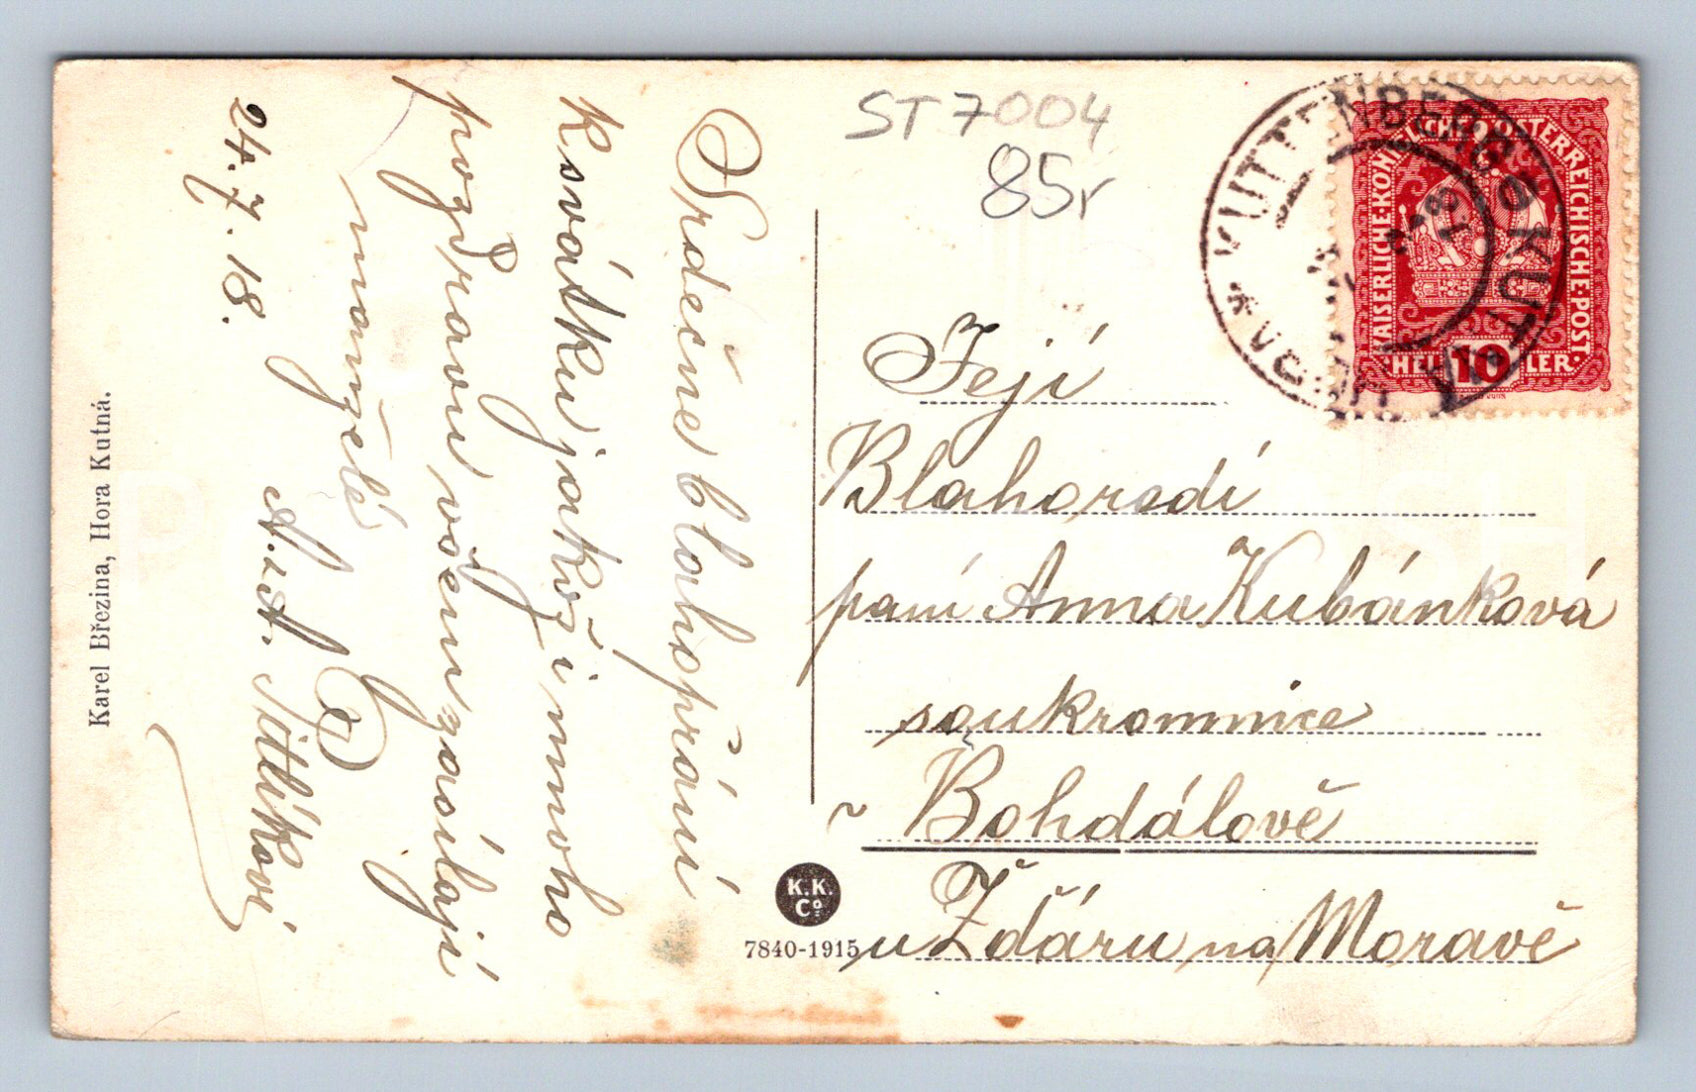 Srdečné blahopřání
k svátku jakož i mnoho
pozdravu všem zasílají
manželé
A. a A. Pitlíkovi
24. 7. 18.
Karel Březina, Hora Kutná.
ST 7004
85r
KUTTENBERG
KUTNÁ
KAISERLICHE·KÖNIGLICHE·ÖSTERREICHISCHE·POST·
HELLER
10
Její
Blahorodí
paní Anna Kubánková
soukromnice
v Bohdálově
u Žďáru na Moravě
K.K.
Co.
7840-1915